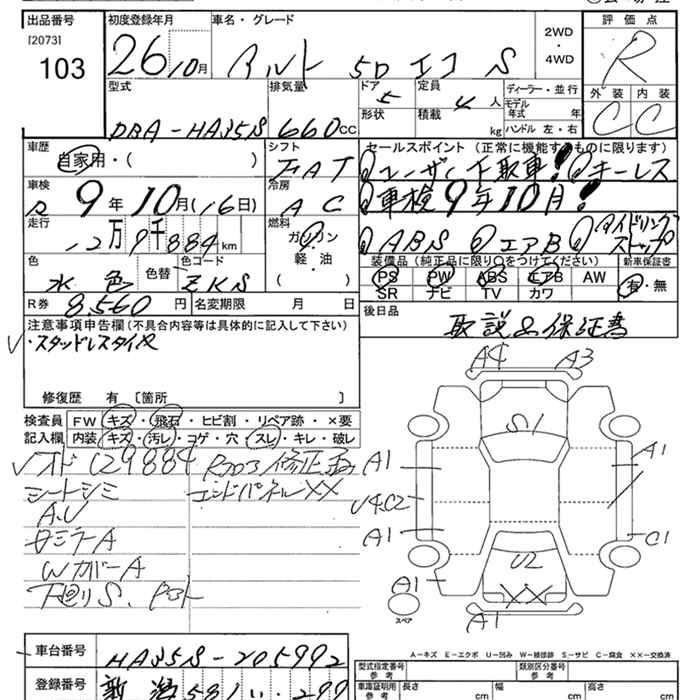 出品番号 初度登録年月 車名・グレード 2WD・4WD 評価点
[2073]
103 26/10月 アルト 5D エコ S R
型式 排気量 ドア 5 定員 4人 ディーラー・並行 外装 内装
形状 積載 kg モデル年式 年 C C
DBA-HA35S 660cc ハンドル 左・右
車歴 シフト セールスポイント (正常に機能するものに限ります)
自家用・( ) FAT ユーザー下取車! キーレス
車検 冷房 車検9年10月!
R9年10月(16日) AC
走行 燃料 ABS エアB アイドリングストップ
12万9千884km ガソリン
軽・油
( )
色 色替 色コード 装備品(純正品に限り○をつけてください) 新車保証書
水色 ZKS PS PW ABS エアB AW 有・無
SR ナビ TV カワ
R券 8,560円 名変期限 月 日 後日品
取説&保証書
注意事項申告欄(不具合内容等は具体的に記入して下さい)
・スタッドレスタイヤ
修復歴 有 [箇所 ]
検査員記入欄 FW キズ・飛石・ヒビ割・リペア跡・×要
内装 キズ・汚レ・コゲ・穴・スレ・キレ・破レ
129884 修正
シートシミ エンドパネルXX
A.U
A
WカバーA
下廻りS.
A4 A3
S1
A1 A1
U4.C2
A1 C1
U2
XX
A1 A1
スペア
A-キズ E-エクボ U-凹み W-補修跡 S-サビ C-腐食 XX-交換済
車台番号 HA35S-205992
型式指定番号 参考 類別区分番号 参考
登録番号 新潟581 い 299
車庫証明用 参考 長さ cm 幅 cm 高さ cm